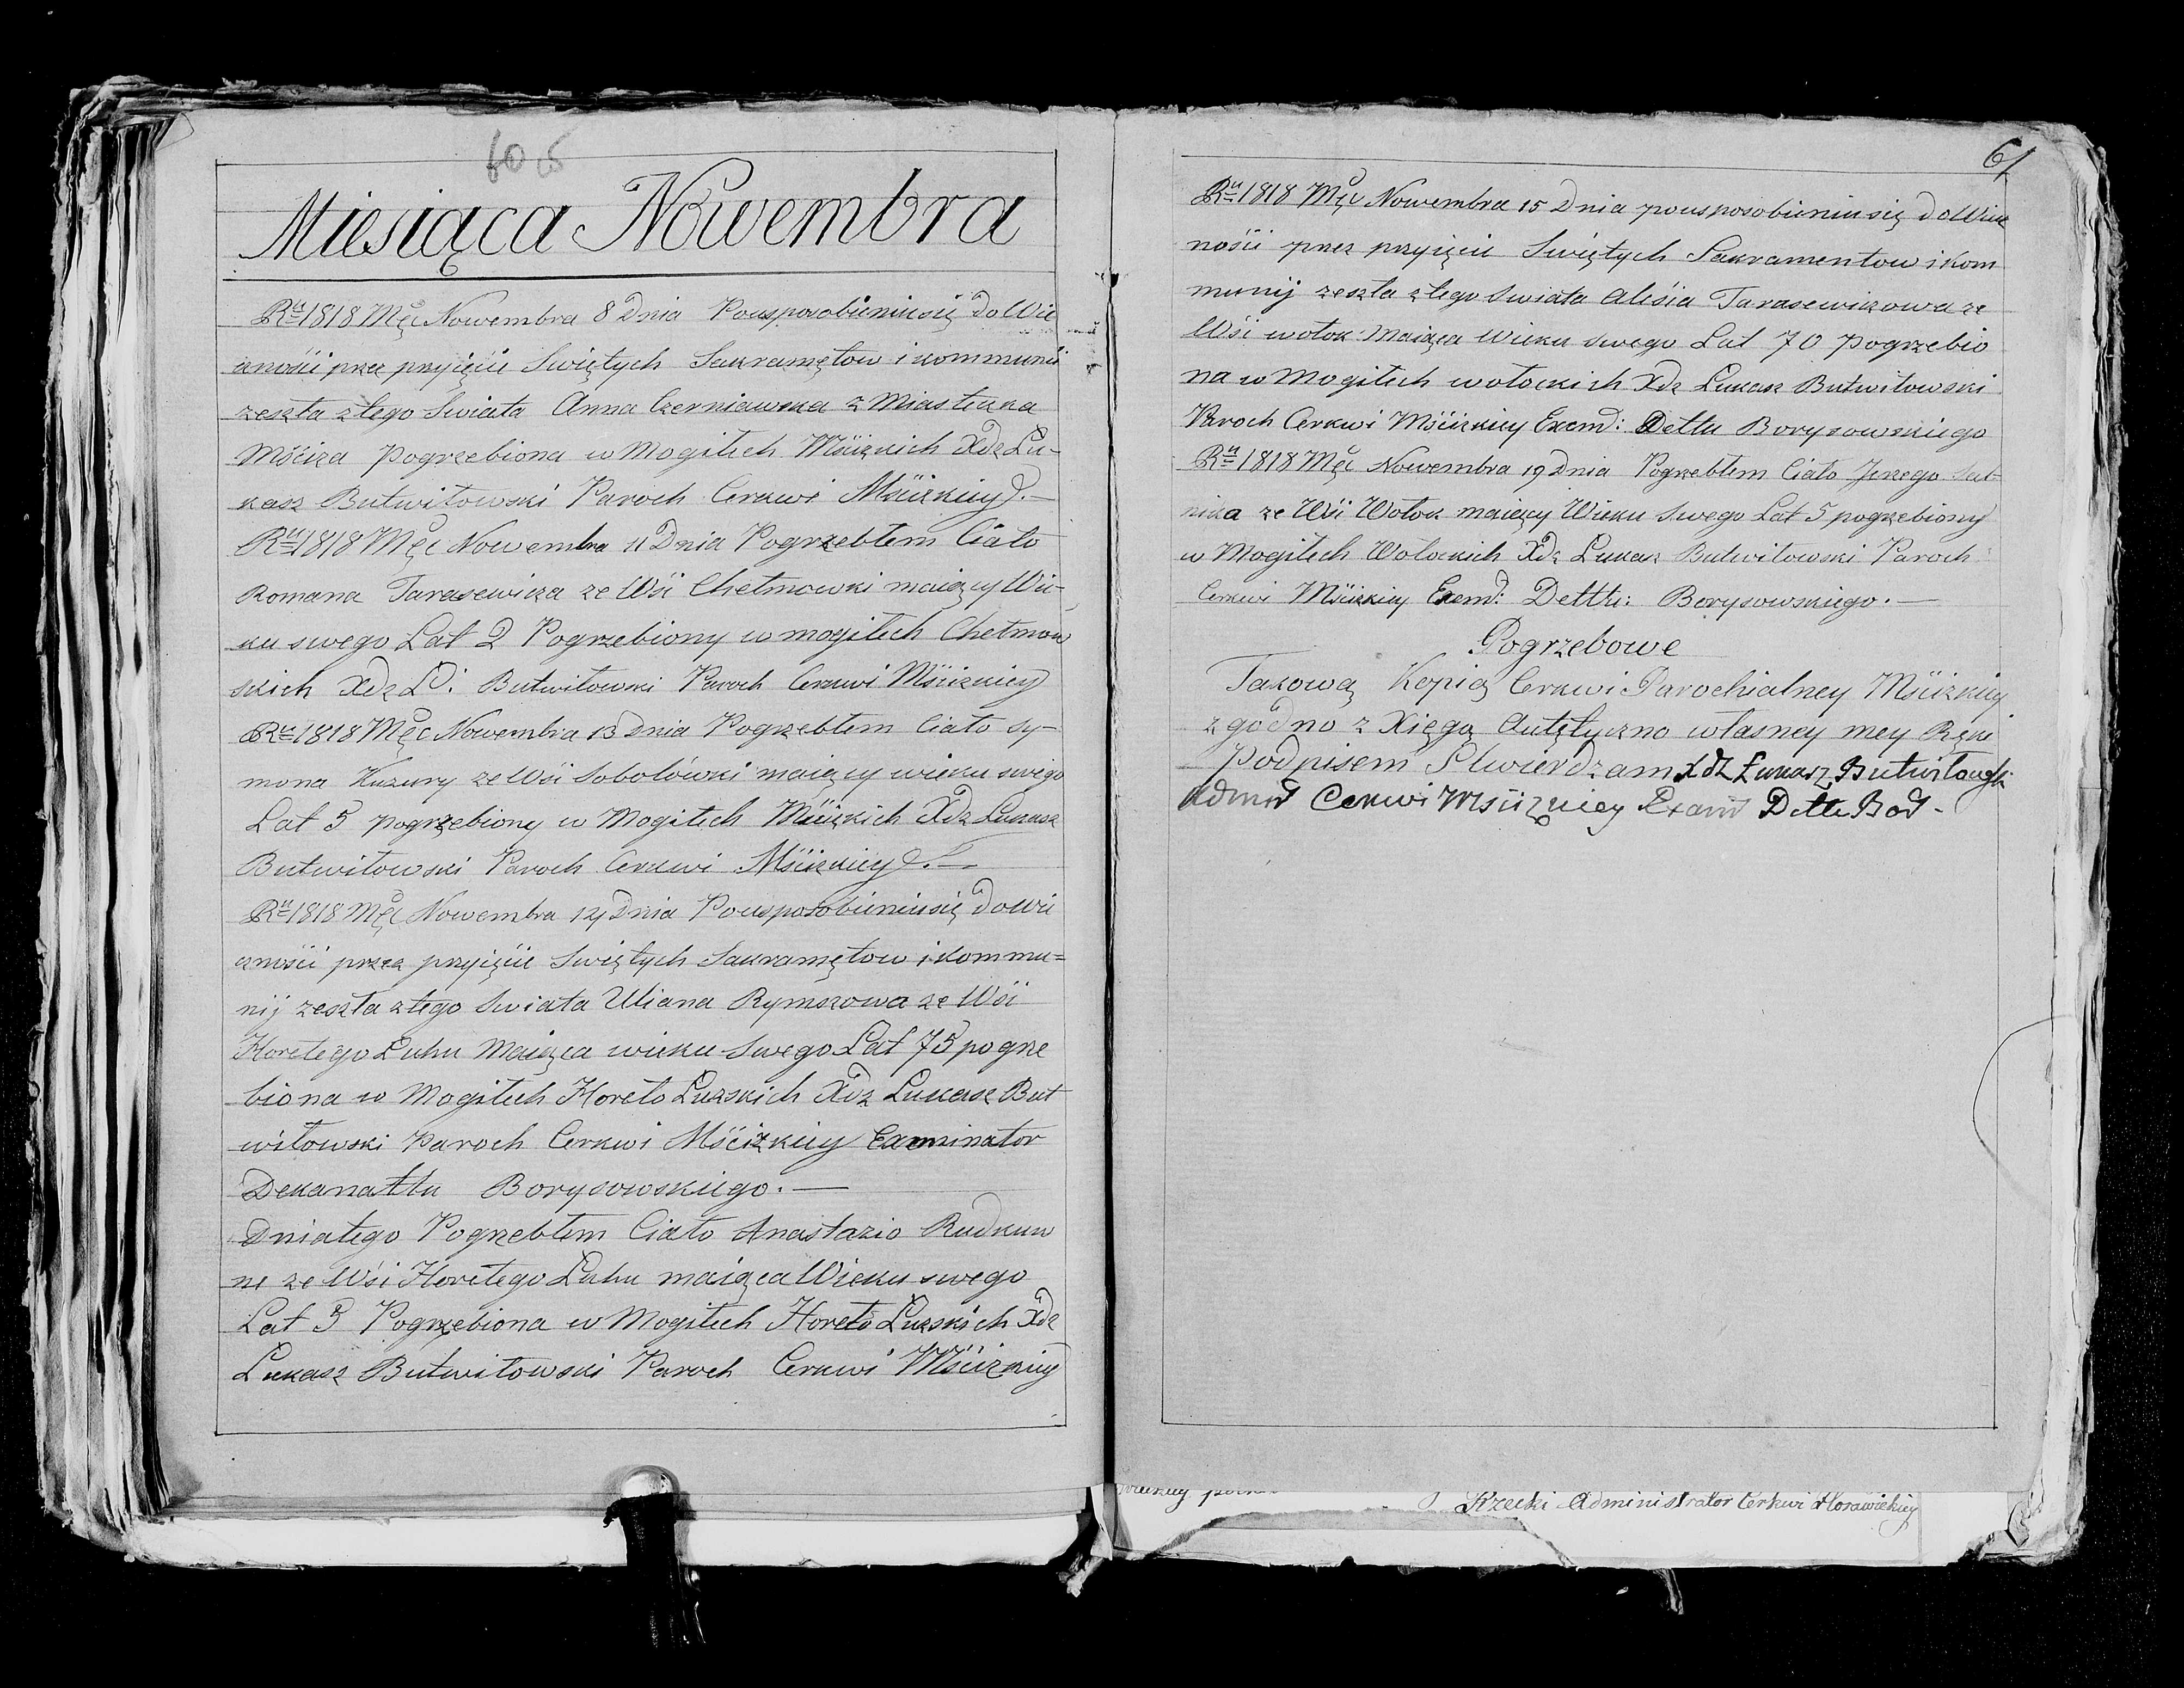 Miesiąca Nowembra
Ru 1818 Mca Nowembra 8 Dnia Pousposobieniusię do Wie
cznośći prze przyięćie Swiętych Sakramętow i kommunii
zeszła ztego Swiata Anna Czerniawska z Miasteczka
Mśćiża Pogrzebiona w Mogiłech Mśćiżkich Xdz Łu-
kasz Butwiłowski Paroch Cerkwi Mśćiżkiey.—
Ru 1818 Mca Nowembra 11 Dnia Pogrzebłem Ciało
Romana Tarasewicza ze Wśi Chełmowki maiący Wie-
ku swego Lat 2 Pogrzebiony w mogiłech Chełmow
skich Xdz Ł: Butwiłowski Paroch Cerkwi Mśćiżkiey
Ru 1818 Mca Nowembra 13 Dnia Pogrzebłem Ciało Sy-
mona Kuzury ze Wśi Sobolówki maiący wieku swego
Lat 5 pogrzebiony w Mogiłech Mśćiżkich Xdz Łukasz
Butwiłowski Paroch Cerkwi Mśćiżkiey.—
Ru 1818 Mca Nowembra 14 Dnia Pousposobieniusię do Wie
cznośći przez przyięćie Swiętych Sakramętow i Kommu=
nij zeszła ztego Swiata Uliana Rymszowa ze Wśi
Horełego Łuhu Maiąca wieku Swego Lat 75 pogrze
biona w Mogiłech Horeło Łuzskich Xdz Łukasz But
wiłowski Paroch Cerkwi Mśćiżkiey Exeminator
Dekanattu Borysowskiego.—
Dniatego Pogrzebłem Ciało Anastazio Rudkuw
ne ze Wśi Horełego Łuhu maiąca Wieku swego
Lat 3 Pogrzebiona w Mogiłech Horeło Łuzskich Xdz
Łukasz Butwiłowski Paroch Cerkwi Mśćiżkiey
61
Ru 1818 Mca Nowembra 15 Dnia pousposobieniusię do Wiecz
nośći przez przyięćie Swiętych Sakramentow i kom
munij zeszła ztego Swiata Aleśia Tarasewiczowa ze
Wśi Wołok Maiąca Wieku swego Lat 70 Pogrzebio
na w Mogiłech wołockich Xdz Łukasz Butwiłowski
Paroch Cerkwi Mśćiżkiey Exem: Dettu Borysowskiego
Ru 1818 Mca Nowembra 19 Dnia Pogrzebłem Ciało Jerzego
ze Wśi Wołok maiący Wieku Swego Lat 5 pogrzebiony
w Mogiłech Wołockich Xdz Łukasz Butwiłowski Paroch
Cerkwi Mśćiżkiey Exem: Dettu: Borysowskiego.—
Pogrzebowe
Takową Kopią Cerkwi Parochialney Mśćiżkiey
zgodno z Xięgą Autętyczno własney mey Ręki
Podpisem Stwierdzam Xdz Łukasz Butwiłowski
Admor Cerkwi Mśćiżkiey Exam Dettu Bor-
Rzecki Administrator Cerkwi